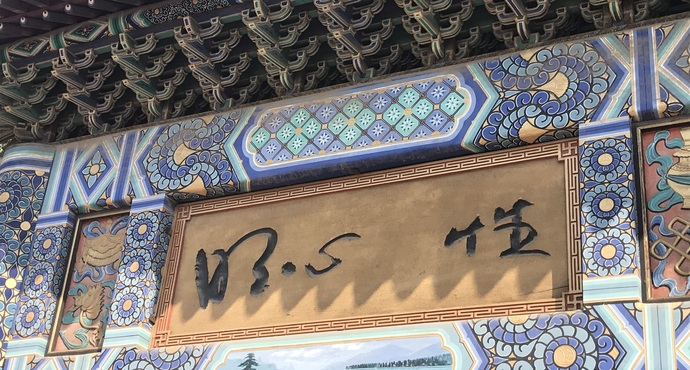 明心 性